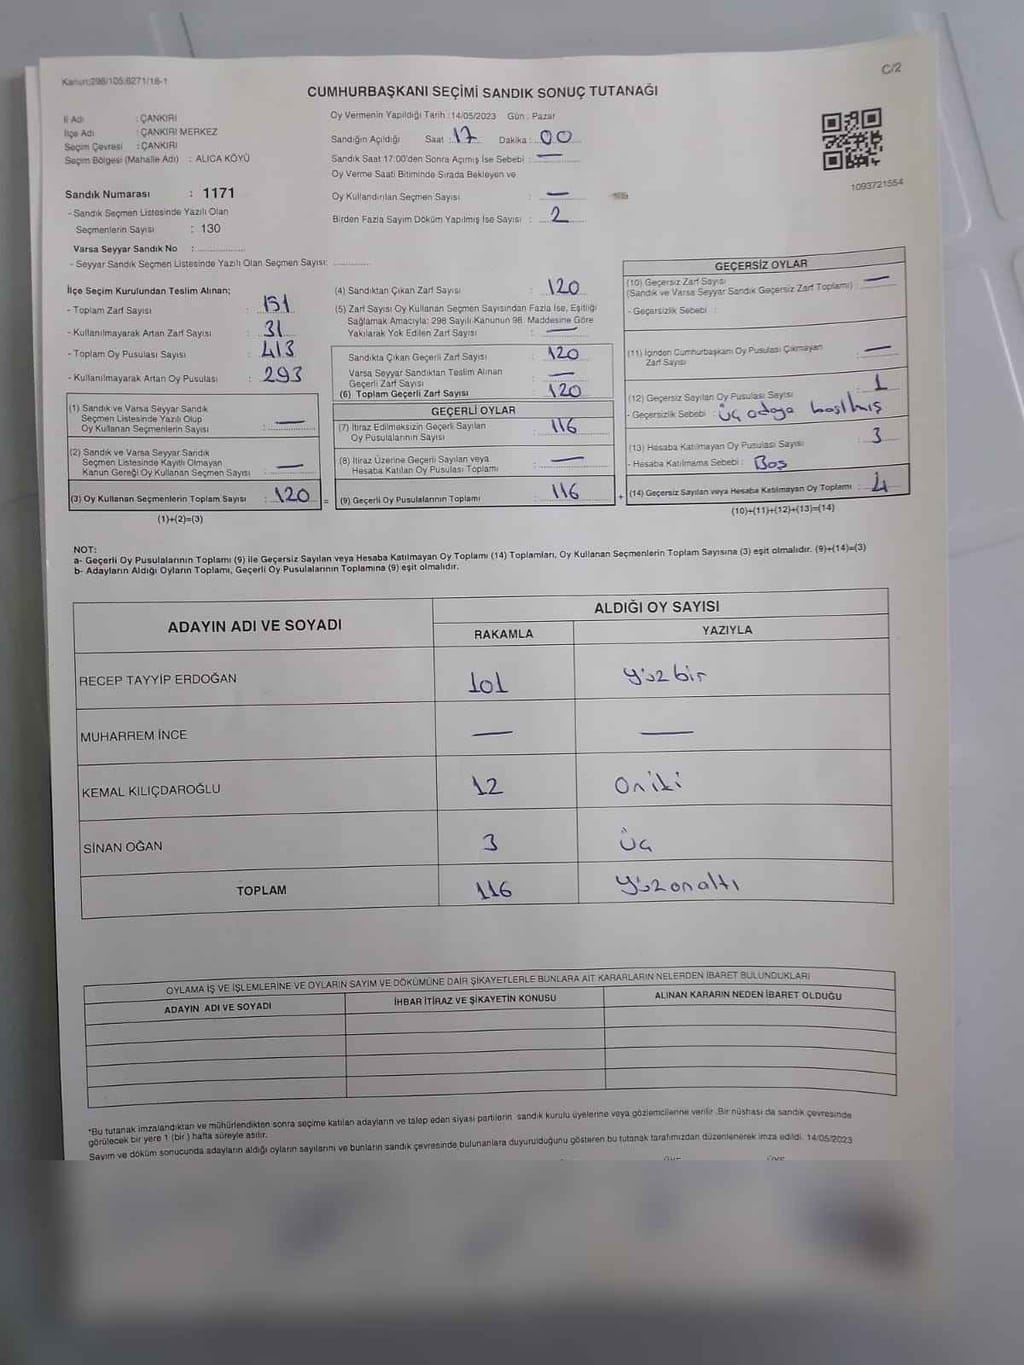 Kanun:298/105.6271/18-1
C/2
CUMHURBAŞKANI SEÇİMİ SANDIK SONUÇ TUTANAĞI
İl Adı : ÇANKIRI
İlçe Adı : ÇANKIRI MERKEZ
Seçim Çevresi : ÇANKIRI
Seçim Bölgesi (Mahalle Adı) : ALICA KÖYÜ
Oy Vermenin Yapıldığı Tarih :14/05/2023 Gün : Pazar
Sandığın Açıldığı Saat : 17 Dakika : 00
Sandık Saat 17:00'den Sonra Açımış İse Sebebi : —
Oy Verme Saati Bitiminde Sırada Bekleyen ve
Oy Kullandırılan Seçmen Sayısı : —
Birden Fazla Sayım Döküm Yapılmış İse Sayısı : 2
1093721554
Sandık Numarası : 1171
- Sandık Seçmen Listesinde Yazılı Olan
Seçmenlerin Sayısı : 130
Varsa Seyyar Sandık No :
- Seyyar Sandık Seçmen Listesinde Yazılı Olan Seçmen Sayısı:
İlçe Seçim Kurulundan Teslim Alınan;
- Toplam Zarf Sayısı : 151
- Kullanılmayarak Artan Zarf Sayısı : 31
- Toplam Oy Pusulası Sayısı : 413
- Kullanılmayarak Artan Oy Pusulası : 293
(1) Sandık ve Varsa Seyyar Sandık
Seçmen Listesinde Yazılı Olup
Oy Kullanan Seçmenlerin Sayısı : —
(2) Sandık ve Varsa Seyyar Sandık
Seçmen Listesinde Kayıtlı Olmayan
Kanun Gereği Oy Kullanan Seçmen Sayısı : —
(3) Oy Kullanan Seçmenlerin Toplam Sayısı : 120 =
(1)+(2)=(3)
(4) Sandıktan Çıkan Zarf Sayısı : 120
(5) Zarf Sayısı Oy Kullanan Seçmen Sayısından Fazla İse, Eşitliği
Sağlamak Amacıyla: 298 Sayılı Kanunun 98. Maddesine Göre
Yakılarak Yok Edilen Zarf Sayısı : —
Sandıkta Çıkan Geçerli Zarf Sayısı : 120
Varsa Seyyar Sandıktan Teslim Alınan
Geçerli Zarf Sayısı : —
(6) Toplam Geçerli Zarf Sayısı : 120
GEÇERLİ OYLAR
(7) İtiraz Edilmeksizin Geçerli Sayılan
Oy Pusulalarının Sayısı : 116
(8) İtiraz Üzerine Geçerli Sayılan veya
Hesaba Katılan Oy Pusulası Toplamı : —
(9) Geçerli Oy Pusulalarının Toplamı : 116 +
GEÇERSİZ OYLAR
(10) Geçersiz Zarf Sayısı : —
(Sandık ve Varsa Seyyar Sandık Geçersiz Zarf Toplamı)
- Geçersizlik Sebebi :
(11) İçinden Cumhurbaşkanı Oy Pusulası Çıkmayan
Zarf Sayısı : —
(12) Geçersiz Sayılan Oy Pusulası Sayısı : 1
- Geçersizlik Sebebi : üç adaya basılmış
(13) Hesaba Katılmayan Oy Pusulası Sayısı : 3
- Hesaba Katılmama Sebebi : Boş
(14) Geçersiz Sayılan veya Hesaba Katılmayan Oy Toplamı : 4
(10)+(11)+(12)+(13)=(14)
NOT:
a- Geçerli Oy Pusulalarının Toplamı (9) ile Geçersiz Sayılan veya Hesaba Katılmayan Oy Toplamı (14) Toplamları, Oy Kullanan Seçmenlerin Toplam Sayısına (3) eşit olmalıdır. (9)+(14)=(3)
b- Adayların Aldığı Oyların Toplamı, Geçerli Oy Pusulalarının Toplamına (9) eşit olmalıdır.
ADAYIN ADI VE SOYADI ALDIĞI OY SAYISI
RAKAMLA YAZIYLA
RECEP TAYYİP ERDOĞAN 101 yüzbir
MUHARREM İNCE — —
KEMAL KILIÇDAROĞLU 12 oniki
SİNAN OĞAN 3 üç
TOPLAM 116 yüzonaltı
OYLAMA İŞ VE İŞLEMLERİNE VE OYLARIN SAYIM VE DÖKÜMÜNE DAİR ŞİKAYETLERLE BUNLARA AİT KARARLARIN NELERDEN İBARET BULUNDUKLARI
ADAYIN ADI VE SOYADI İHBAR İTİRAZ VE ŞİKAYETİN KONUSU ALINAN KARARIN NEDEN İBARET OLDUĞU
*Bu tutanak imzalandıktan ve mühürlendikten sonra seçime katılan adayların ve talep eden siyasi partilerin sandık kurulu üyelerine veya gözlemcilerine verilir .Bir nüshası da sandık çevresinde
görülecek bir yere 1 (bir) hafta süreyle asılır.
Sayım ve döküm sonucunda adayların aldığı oyların sayılarını ve bunların sandık çevresinde bulunanlara duyurulduğunu gösteren bu tutanak tarafımızdan düzenlenerek imza edildi. 14/05/2023